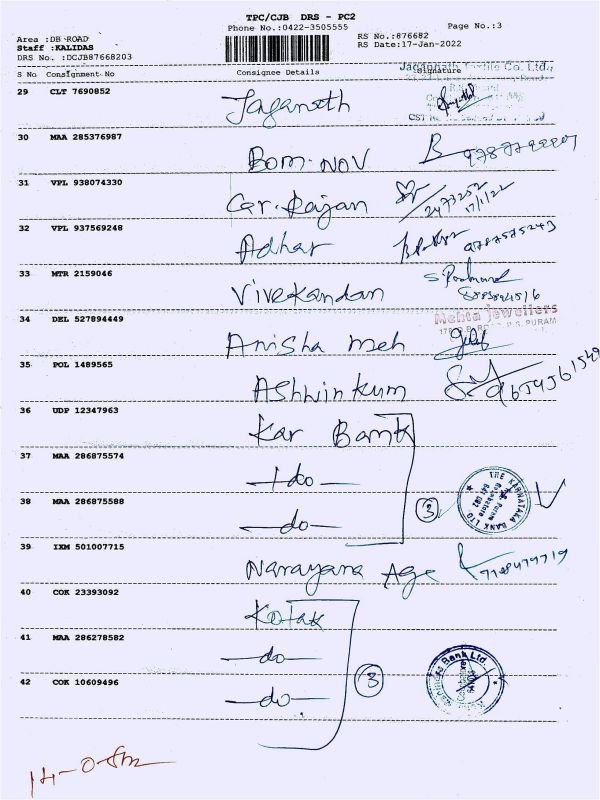 TPC/CJB DRS - PC2
Phone No.:0422-3505555
Page No.:3
Area :DB ROAD
Staff :KALIDAS
DRS No. :DCJB87668203
RS No.:876682
RS Date:17-Jan-2022
S No Consignment No Consignee Details Signature
Jagannath Textile Co. Ltd.,
29 CLT 7690852 Jaganath
30 MAA 285376987 Bom-NOV
31 VPL 938074330 Gr. Rajan
17/1/22
32 VPL 937569248 Adhar
33 MTR 2159046 Vivekandan
34 DEL 527894449 Anisha meh
Mehta jewellers
35 POL 1489565 Ashwinkum
36 UDP 12347963 Kar Bank
37 MAA 286875574 -do-
38 MAA 286875588 -do-
3
THE KARNATAKA BANK LTD
39 IXM 501007715 Narayana Age
40 COK 23393092 Kotak
41 MAA 286278582 -do-
3
Bank Ltd.
42 COK 10609496 -do-